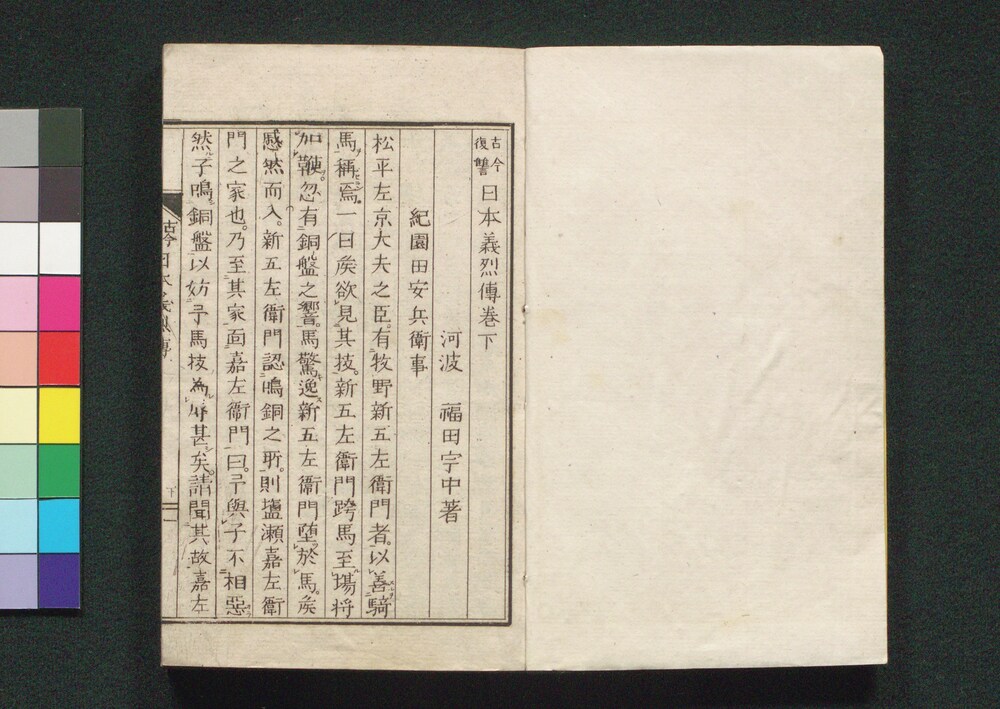 古今復讐日本義烈傳卷下
河波 福田宇中著
紀園田安兵衛事
松平左京大夫之臣有牧野新五左衛門者以善騎
馬稱焉一日矦欲見其技新五左衛門跨馬至場将
加鞭忽有銅盤之響馬驚逸新五左衞門堕於馬矦
慼然而入新五左衛門認鳴銅之所則壒瀬嘉左衛
門之家也乃至其家面嘉左衛門曰予與子不相惡
然子鳴銅盤以妨予馬技為辱甚矣請聞其故嘉左